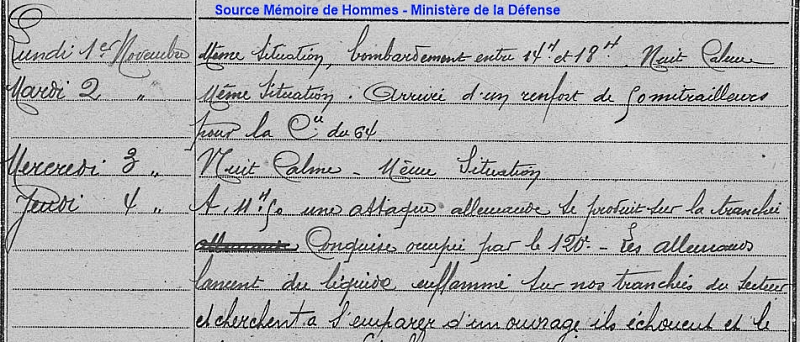 Source Mémoire de Hommes - Ministère de la Défense
Lundi 1er Novembre Même Situation, bombardement entre 14h et 18h. Nuit Calme
Mardi 2 " Même Situation. Arrivé d'un renfort de mitrailleurs
pour la Cie du 64.
Mercredi 3 " Nuit Calme - Même Situation
Jeudi 4 " A une attaque allemande se produit sur la tranchée
Conquise occupée par le 120 - Les allemands
lancent du liquide enflammé sur nos tranchées du secteur
et cherchent a s'emparer d'un ouvrage ils échouent et le